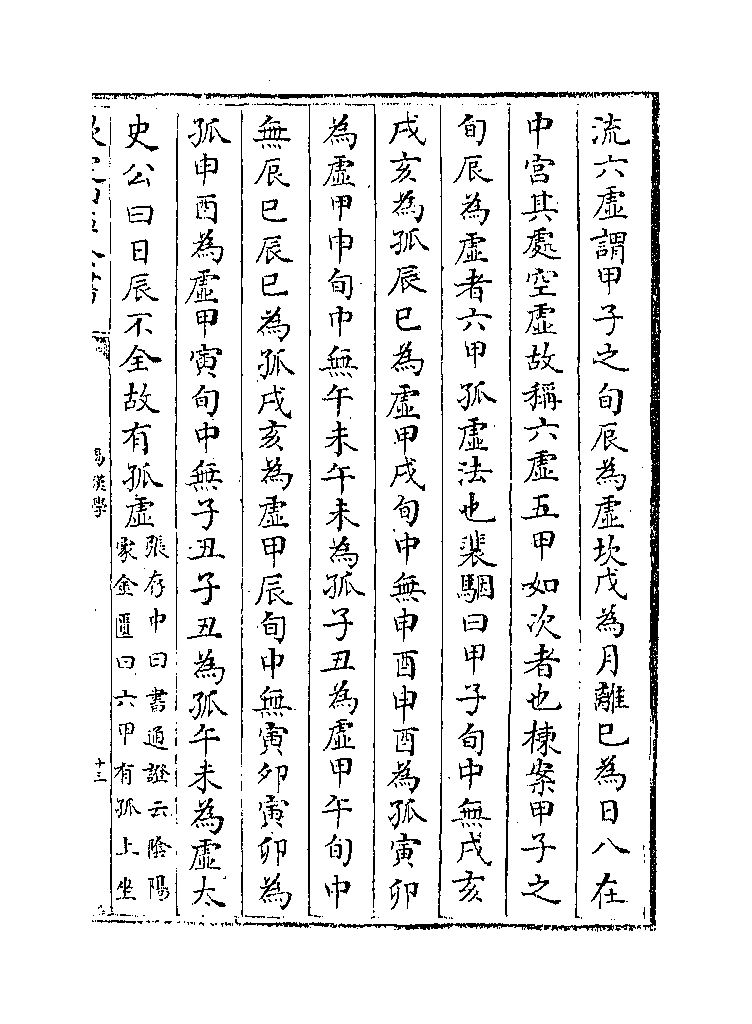 流六虛謂甲子之旬辰為虛坎戊為月離己為日八在
中宮其處空虛故稱六虛五甲如次者也棟案甲子之
旬辰為虛者六甲孤虛法也裴駰曰甲子旬中無戌亥
戌亥為孤辰巳為虛甲戌旬中無申酉申酉為孤寅卯
為虛甲申旬中無午未午未為孤子丑為虛甲午旬中
無辰巳辰巳為孤戌亥為虛甲辰旬中無寅卯寅卯為
孤申酉為虛甲寅旬中無子丑子丑為孤午未為虛太
史公曰日辰不全故有孤虛
張存中曰書通證云陰陽
家金匱曰六甲有孤上坐
易漢學
十三